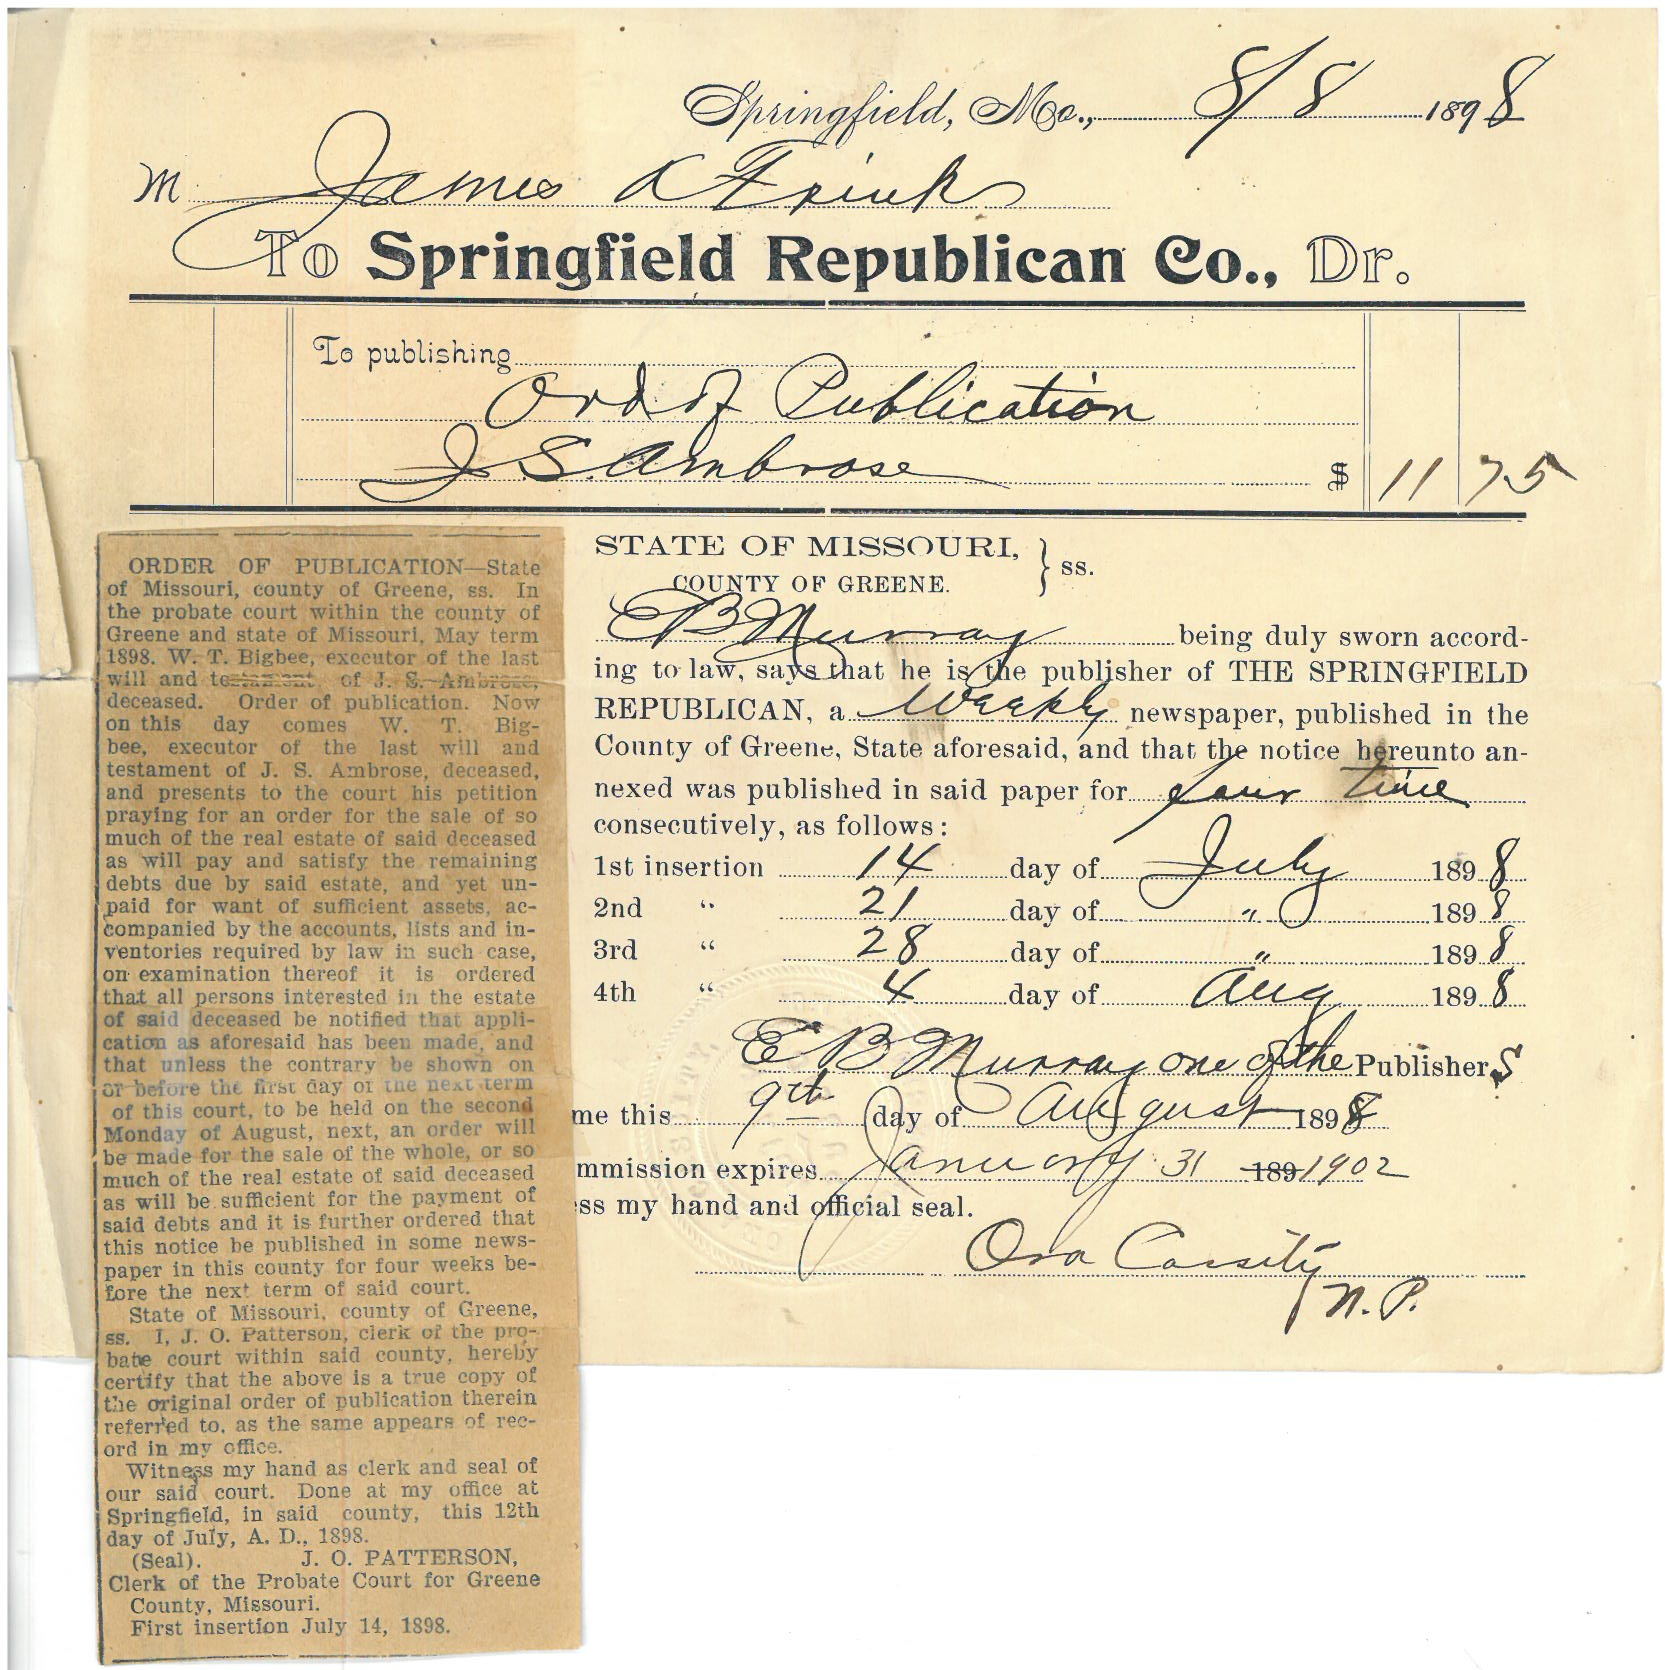 Springfield, Mo., 8/8 1898
M James A Frink
To Springfield Republican Co., Dr.
To publishing
Ord of Publication
J. S. Ambrose $ 11 75
ORDER OF PUBLICATION—State
of Missouri, county of Greene, ss. In
the probate court within the county of
Greene and state of Missouri, May term
1898. W. T. Bigbee, executor of the last
will and testament of J. S. Ambrose,
deceased. Order of publication. Now
on this day comes W. T. Big-
bee, executor of the last will and
testament of J. S. Ambrose, deceased,
and presents to the court his petition
praying for an order for the sale of so
much of the real estate of said deceased
as will pay and satisfy the remaining
debts due by said estate, and yet un-
paid for want of sufficient assets, ac-
companied by the accounts, lists and in-
ventories required by law in such case,
on examination thereof it is ordered
that all persons interested in the estate
of said deceased be notified that appli-
cation as aforesaid has been made, and
that unless the contrary be shown on
or before the first day of the next term
of this court, to be held on the second
Monday of August, next, an order will
be made for the sale of the whole, or so
much of the real estate of said deceased
as will be sufficient for the payment of
said debts and it is further ordered that
this notice be published in some news-
paper in this county for four weeks be-
fore the next term of said court.
State of Missouri, county of Greene,
ss. I, J. O. Patterson, clerk of the pro-
bate court within said county, hereby
certify that the above is a true copy of
the original order of publication therein
referred to, as the same appears of rec-
ord in my office.
Witness my hand as clerk and seal of
our said court. Done at my office at
Springfield, in said county, this 12th
day of July, A. D., 1898.
(Seal). J. O. PATTERSON,
Clerk of the Probate Court for Greene
County, Missouri.
First insertion July 14, 1898.
STATE OF MISSOURI, } ss.
COUNTY OF GREENE.
E B Murray being duly sworn accord-
ing to law, says that he is the publisher of THE SPRINGFIELD
REPUBLICAN, a Weekly newspaper, published in the
County of Greene, State aforesaid, and that the notice hereunto an-
nexed was published in said paper for four time
consecutively, as follows:
1st insertion 14 day of July 1898
2nd " 21 day of " 1898
3rd " 28 day of " 1898
4th " 4 day of Aug 1898
E B Murray one of the Publishers
me this 9th day of August 1898
mmission expires January 31 189 1902
ss my hand and official seal.
Ora Cassity
N. P.